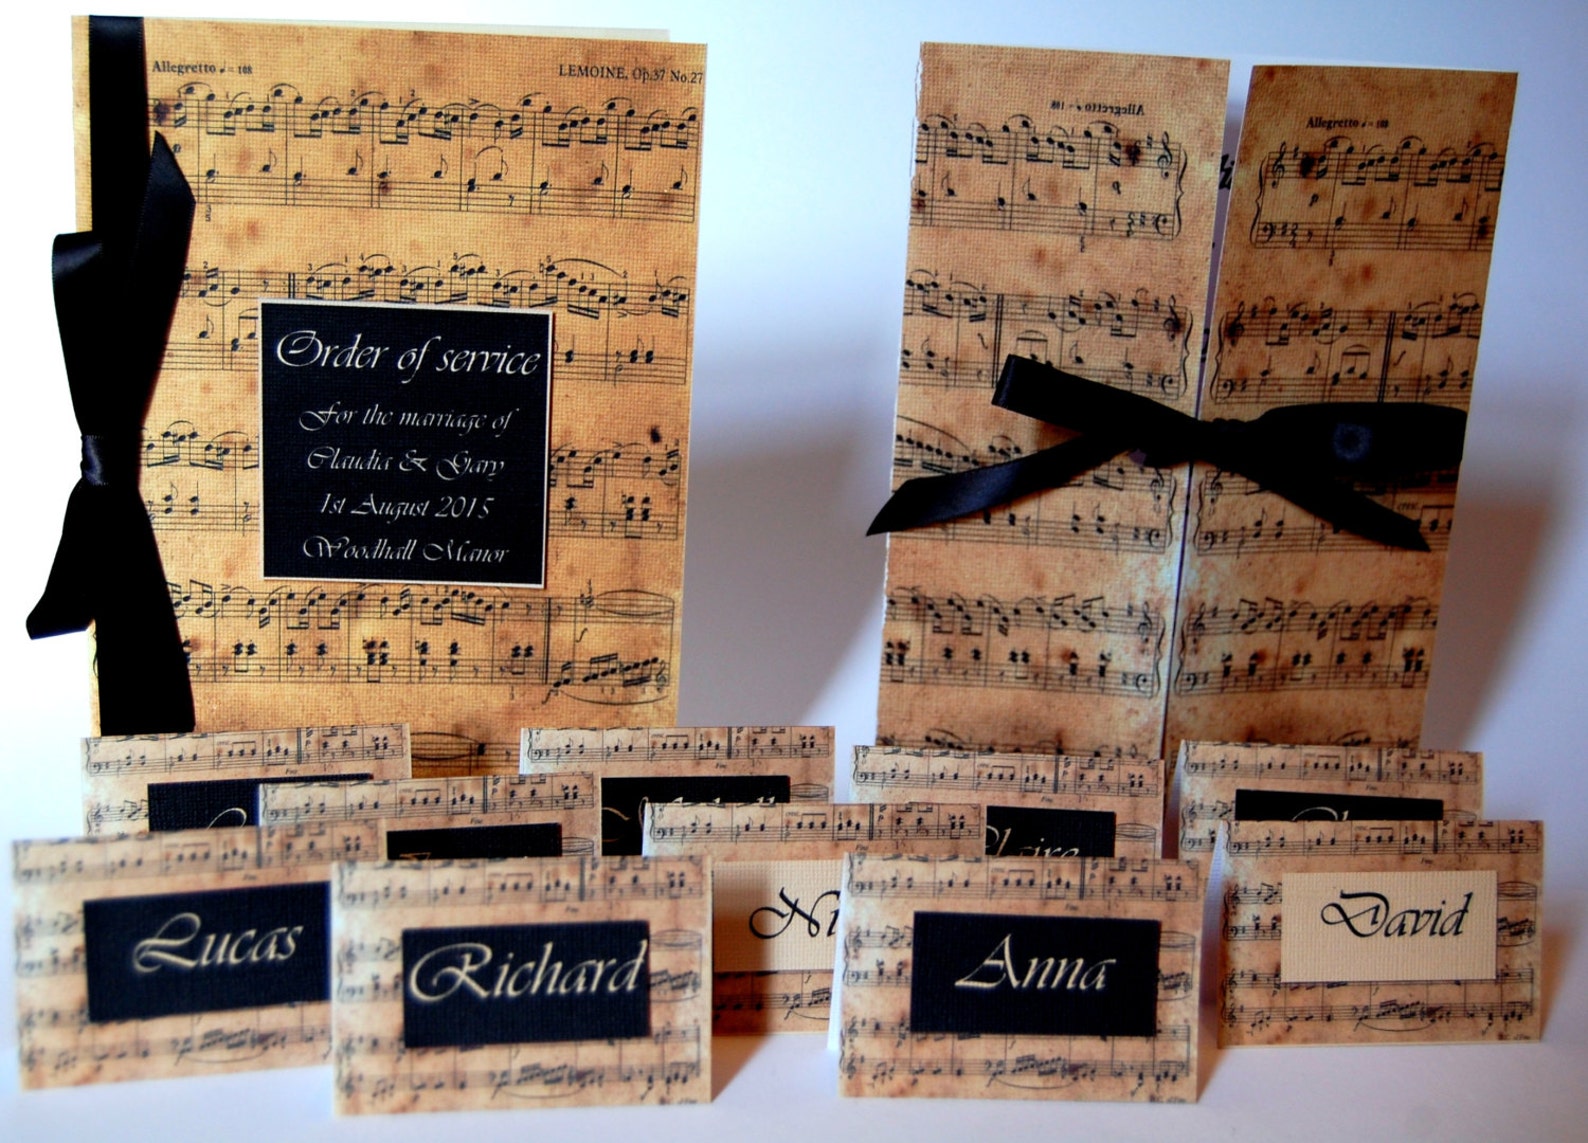 Allegretto ♩= 108
LEMOINE, Op.37 No.27
Order of service
For the marriage of
Claudia & Gary
1st August 2015
Woodhall Manor
Allegretto ♩= 108
Allegretto ♩= 108
cresc.
Fine
Fine
Fine
Fine
Claire
Lucas
Richard
Anna
David